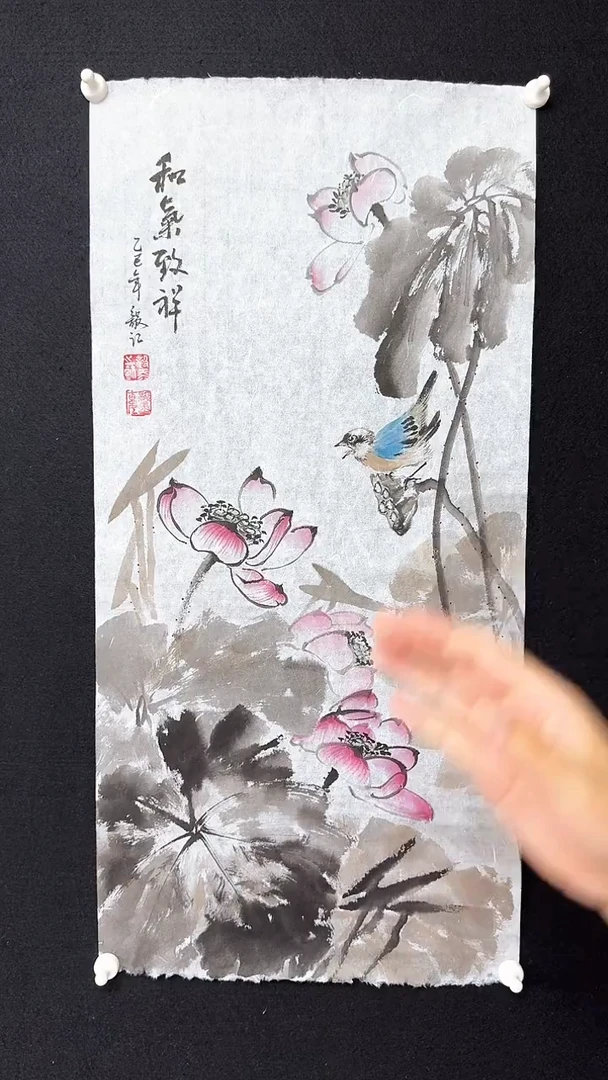 和氣致祥
乙巳年 毅記